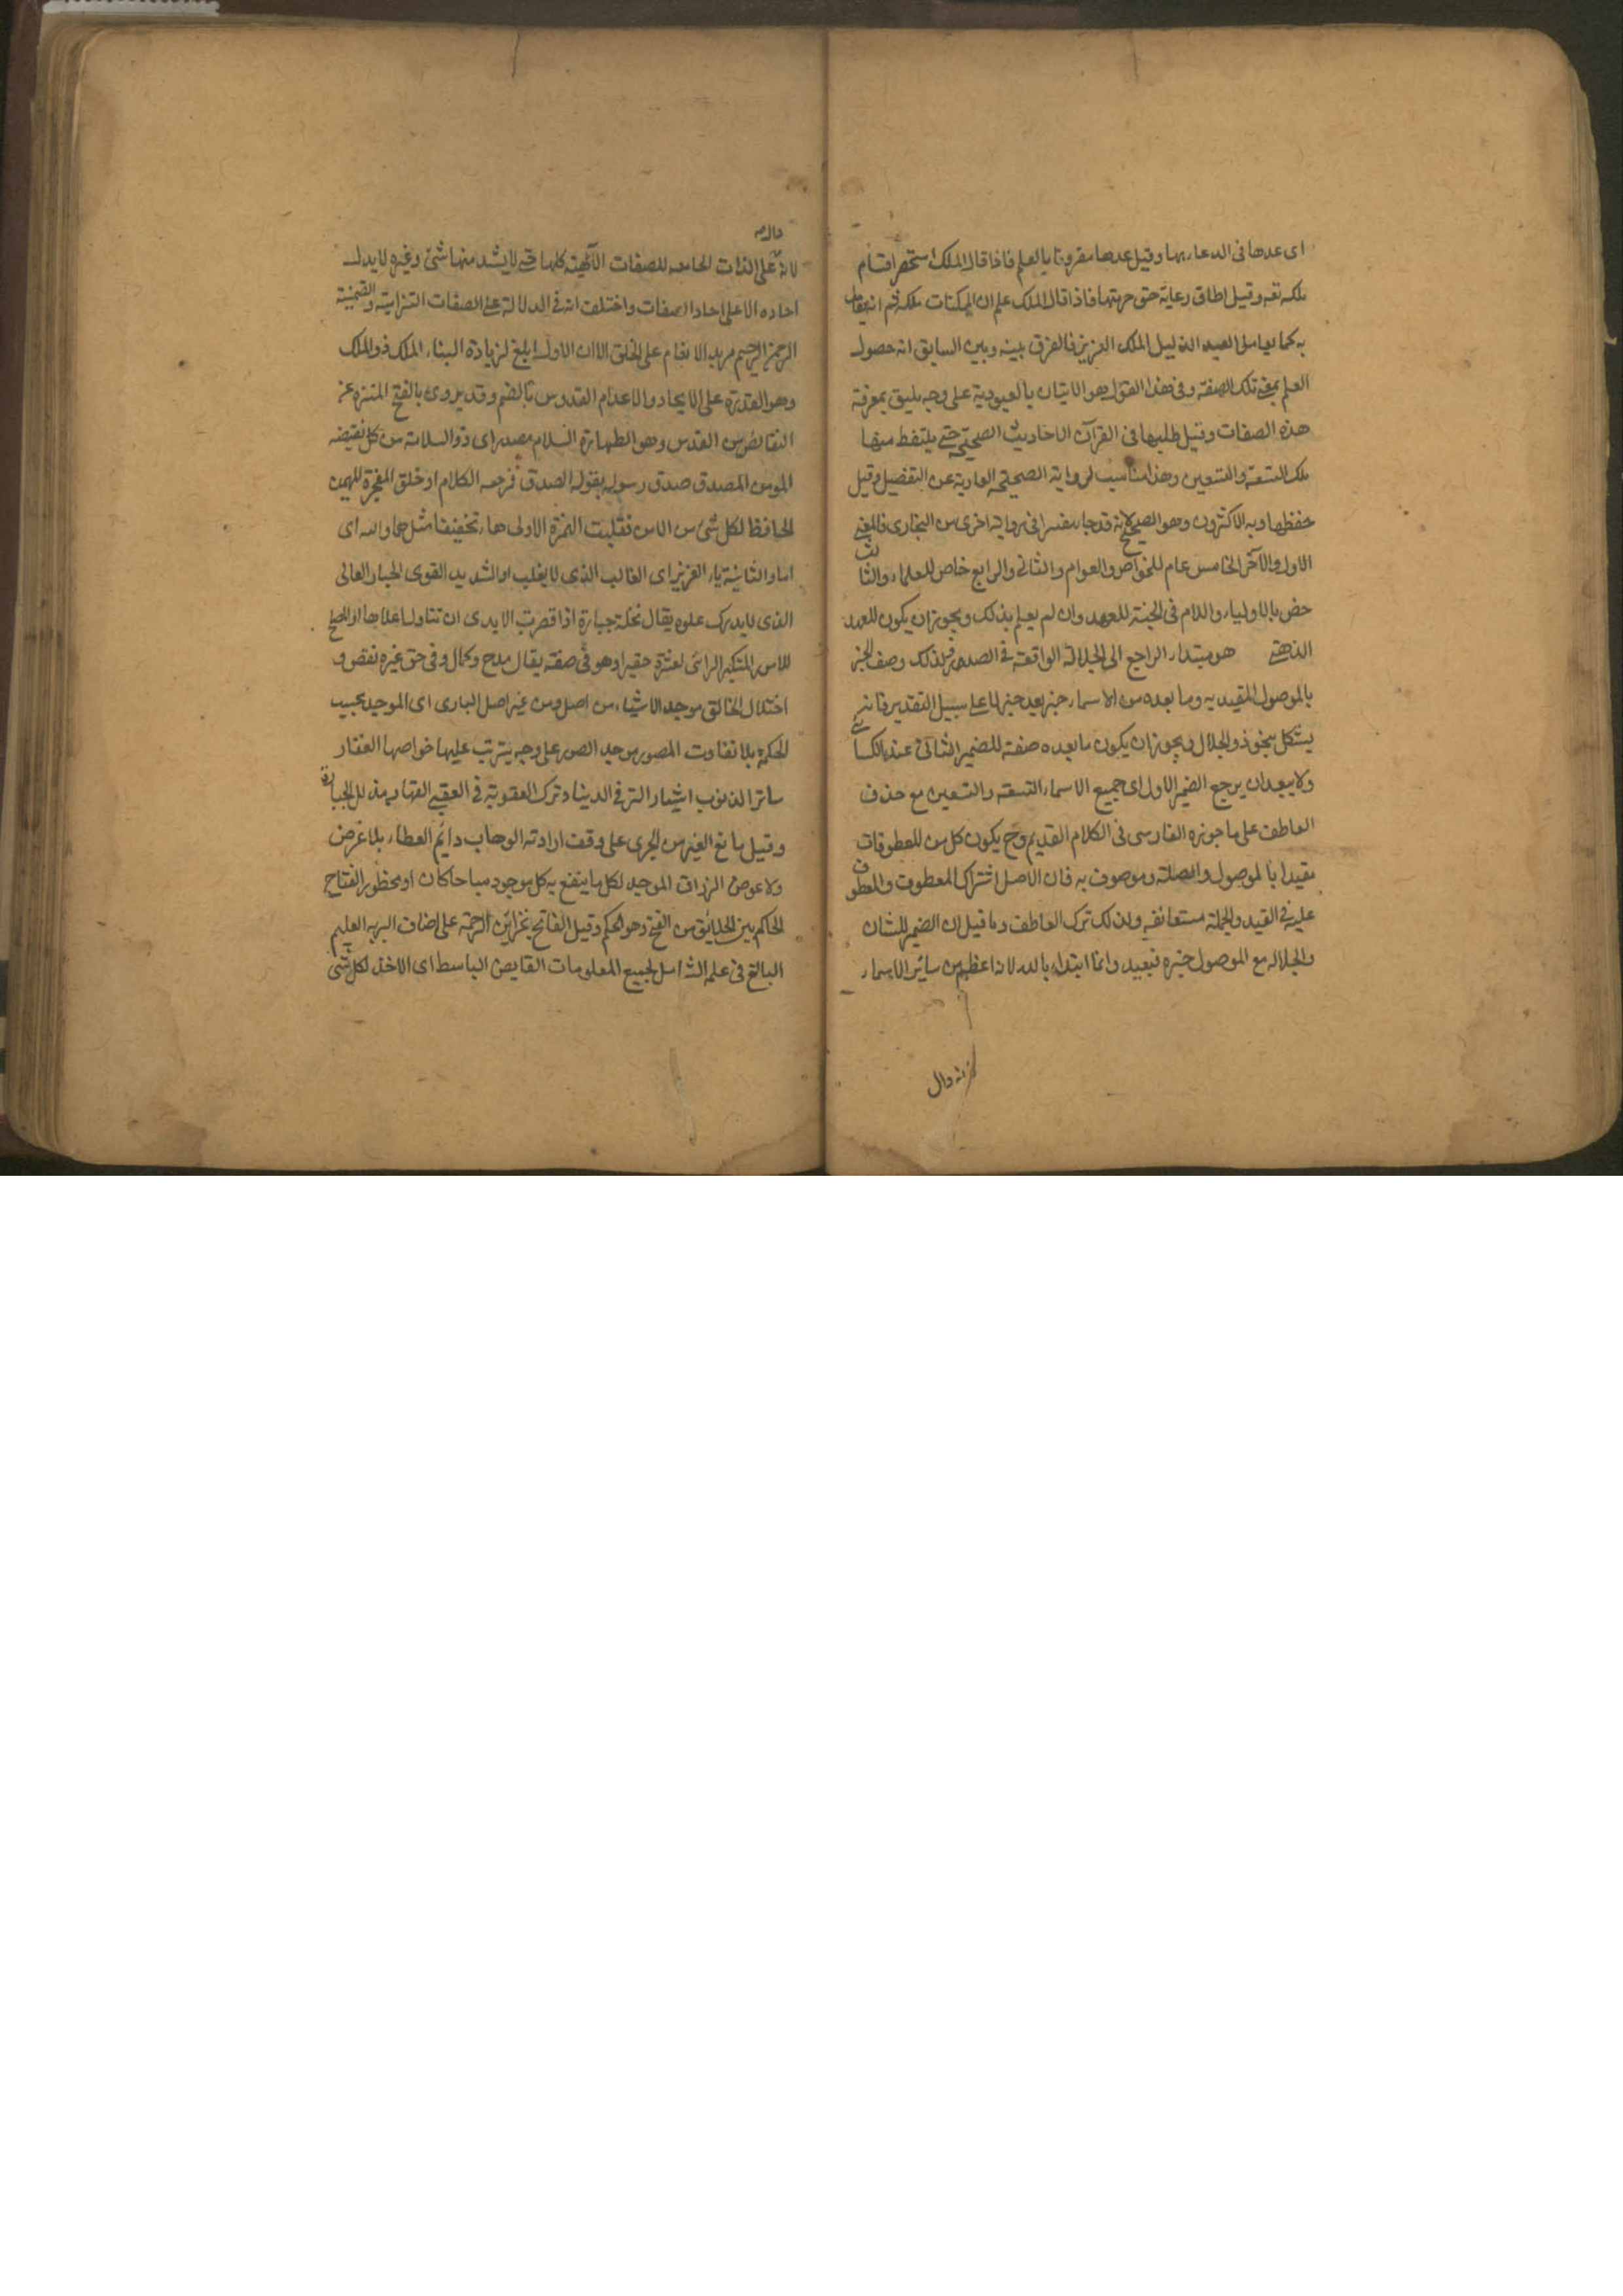 اى عدها فى الدعاء بها وقيل عدها مقرونا بالعلم فاذا قال الملك استحضر اقسام
ملكه تعه وقيل اطاق رعاية حق حرمتها فاذا قال الملك علم ان الممكنات ملكه ثم
به كما يعامل العبد الذليل الملك العزيز فالفرق بينه وبين السابق انه حصول
العلم بمعنى تلك الصفة وفى هذا القول هو الاتيان بالعبودية على وجه يليق بمعرفة
هذه الصفات وقيل طلبها فى القرآن الاحاديث الصحيحة حتى يلتفط منها
تلك التسعة والتسعين وهذا مناسب لرواية الصحيحة العارية عن التفصيل وقيل
حفظها وبه الاكثرون وهو الصحيح لانه قد جاء مفسرا فى رواية اخرى من البخارى فالمعنى
الاول والآخر الخامس عام للخواص والعوام والثانى والرابع خاص للعلماء والثالث
خص بالاولياء واللام فى الجنة للعهد وان لم يعلم بذلك ويجوز ان يكون للعهد
الذهنى هو مبتداء الراجع الى الجلالة الواقعة فى الصدر فلذلك وصف الخبر
بالموصول المقيد به وما بعده من الاسماء خبر بعد خبر لها على سبيل التقدير فانه
يشكل بنحو ذو الجلال ويجوز ان يكون ما بعده صفة للضمير الثانى عند الكسائى
ولا يبعد ان يرجع الضمير الاول اى جميع الاسماء التسعة والتسعين مع حذف
العاطف على ما جوزه الفارسى فى الكلام القديم وح يكون كل من المعطوفات
مقيدا بالموصول والصلة وموصوف به فان الاصل اشتراك المعطوف والمعطوف
عليه فى القيد والجملة مستعانفه ولذلك ترك العاطف وما قيل ان الضمير للشان
والجلاله مع الموصول خبره فبعيد وانما ابتداء بالله لانه اعظم من سائر الاسماء
لانه دال
دالة
لانه على الذات الجامعه للصفات الآلهية كلها حتى لا يشد منها شئ وغيره لا يدل
احاده الا على احاد الصفات واختلف انه فى الدلالة على الصفات التزامية والضمنية
الرحمن الرحيم مريد الانعام على الخلق الا ان الاول ابلغ لزيادة البناء الملك ذو الملك
وهو القدرة على الايجاد والاعدام القدوس بالضم وقد يروى بالفتح المنزه عن
النقائص من القدس وهو الطهارة السلام مصدر اى ذو السلامة من كل نقيضه
المومن المصدق صدق رسوله بقوله الصدق فرجعه الكلام او خلق المعجزة المهيمن
الحافظ لكل شئ من الامن فقلبت الهمزة الاولى هاء تخفيفا مثل هما والله اى
اما والثانية ياء العزيز اى الغالب الذى لا يغلب او الشديد القوى الجبار العالى
الذى لا يدرك علوه يقال نخلة جبارة اذا قصرت الايدى ان تتناول اعلاها او المصلح
للامور المتكبر الرائى لغيره حقيرا وهو فى صفته يقال مدح وكمال وفى حق غيره نقص و
اختلال الخالق موجد الاشياء من اصل ومن غير اصل البارى اى الموجد بحسب
الحكمة بلا تفاوت المصور موجد الصور على وجه يترتب عليها خواصها الغفار
ساتر الذنوب الستر فى الدينا وترك العقوبة فى العقبى القهار مذلل الجبابرة
وقيل مانع الغير من الجرى على وقف ارادته الوهاب دائم العطاء بلا غرض
ولا عوض الرزاق الموجد لكل ما ينتفع به كل موجود مباحا كان او محظورا الفتاح
الحاكم بين الخلايق من الفتح وهو الحكم وقيل الفاتح بخزائن الرحمة على اصناف البريه العليم
البالغ فى علمه الشامل لجميع المعلومات القابض الباسط اى الاخذ لكل شئ